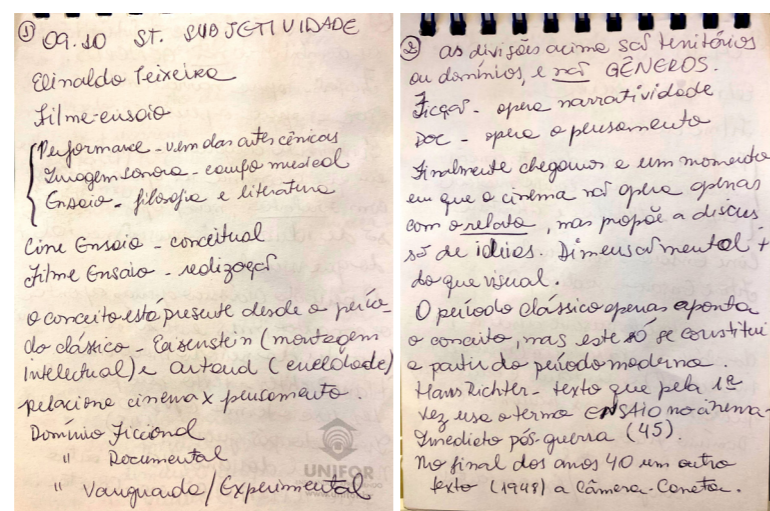 1 09.10 ST. SUBJETIVIDADE
Elinaldo Teixeira
Filme-ensaio
Performance - vem das artes cênicas
Imagem sonora - campo musical
Ensaio - filosofia e literatura
Cine Ensaio - conceitual
Filme Ensaio - realização
O conceito está presente desde o perío-
do clássico - Eisenstein (montagem
intelectual) e Artaud (crueldade)
relaciona cinema x pensamento.
Domínio Ficcional
" Documental
" Vanguarda/Experimental
UNIFOR
2 as divisões acima são territórios
ou domínios, e não GÊNEROS.
Ficção - opera narratividade
Doc - opera o pensamento
Finalmente chegamos a um momento
em que o cinema não opera apenas
com o relato, mas propõe a discus
são de idéias. Dimensão mental +
do que visual.
O período clássico apenas aponta
o conceito, mas este só se constitui
a partir do período moderno.
Hans Richter - texto que pela 1ª
vez usa o termo ENSAIO no cinema.
Imediato pós-guerra (45).
No final dos anos 40 um outro
texto (1948) a Câmera-Caneta.